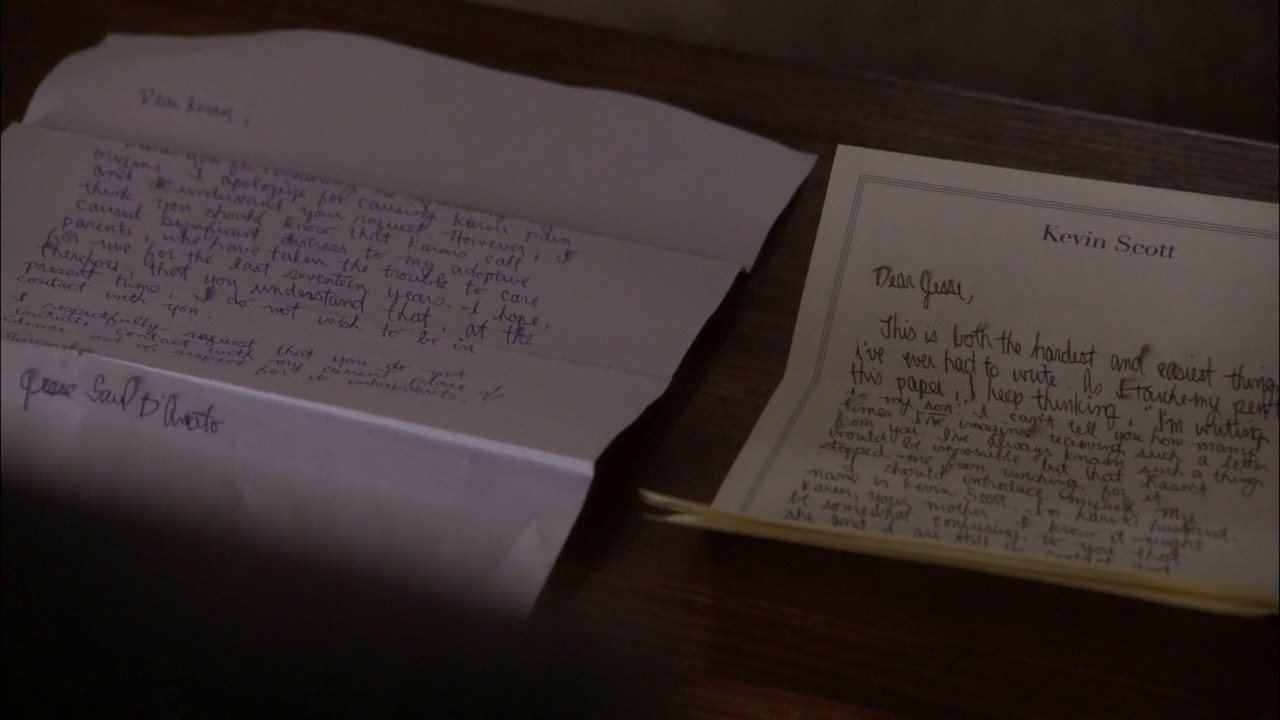 Dear Kevin,
origins. I apologize for causing Karen pain
and I understand your request. However, I
think you should know that Karen's call
caused significant distress to my adoptive
parents, who have taken the trouble to care
for me for the last seventeen years. I hope,
therefore, that you understand that, at the
present time, I do not wish to be in
contact with you.
I respectfully request that you do not
initiate contact with my current place of
out of respect for its inhabitants.
Sincerely
Jesse Saul D'Amato
Kevin Scott
Dear Jesse,
This is both the hardest and easiest thing
i've ever had to write. As I touch my pen
this paper, I keep thinking, "I'm writing
to my son." I can't tell you how many
times I've imagined recieving such a letter
from you. I've always known such a thing
would be impossible but that hasn't
stopped me from wishing for it.
I should introduce myself. My
name is Kevin Scott. I'm Karen's husband.
Karen, your mother. I know it might
be somewhat confusing to you that
she and I are still in contact and